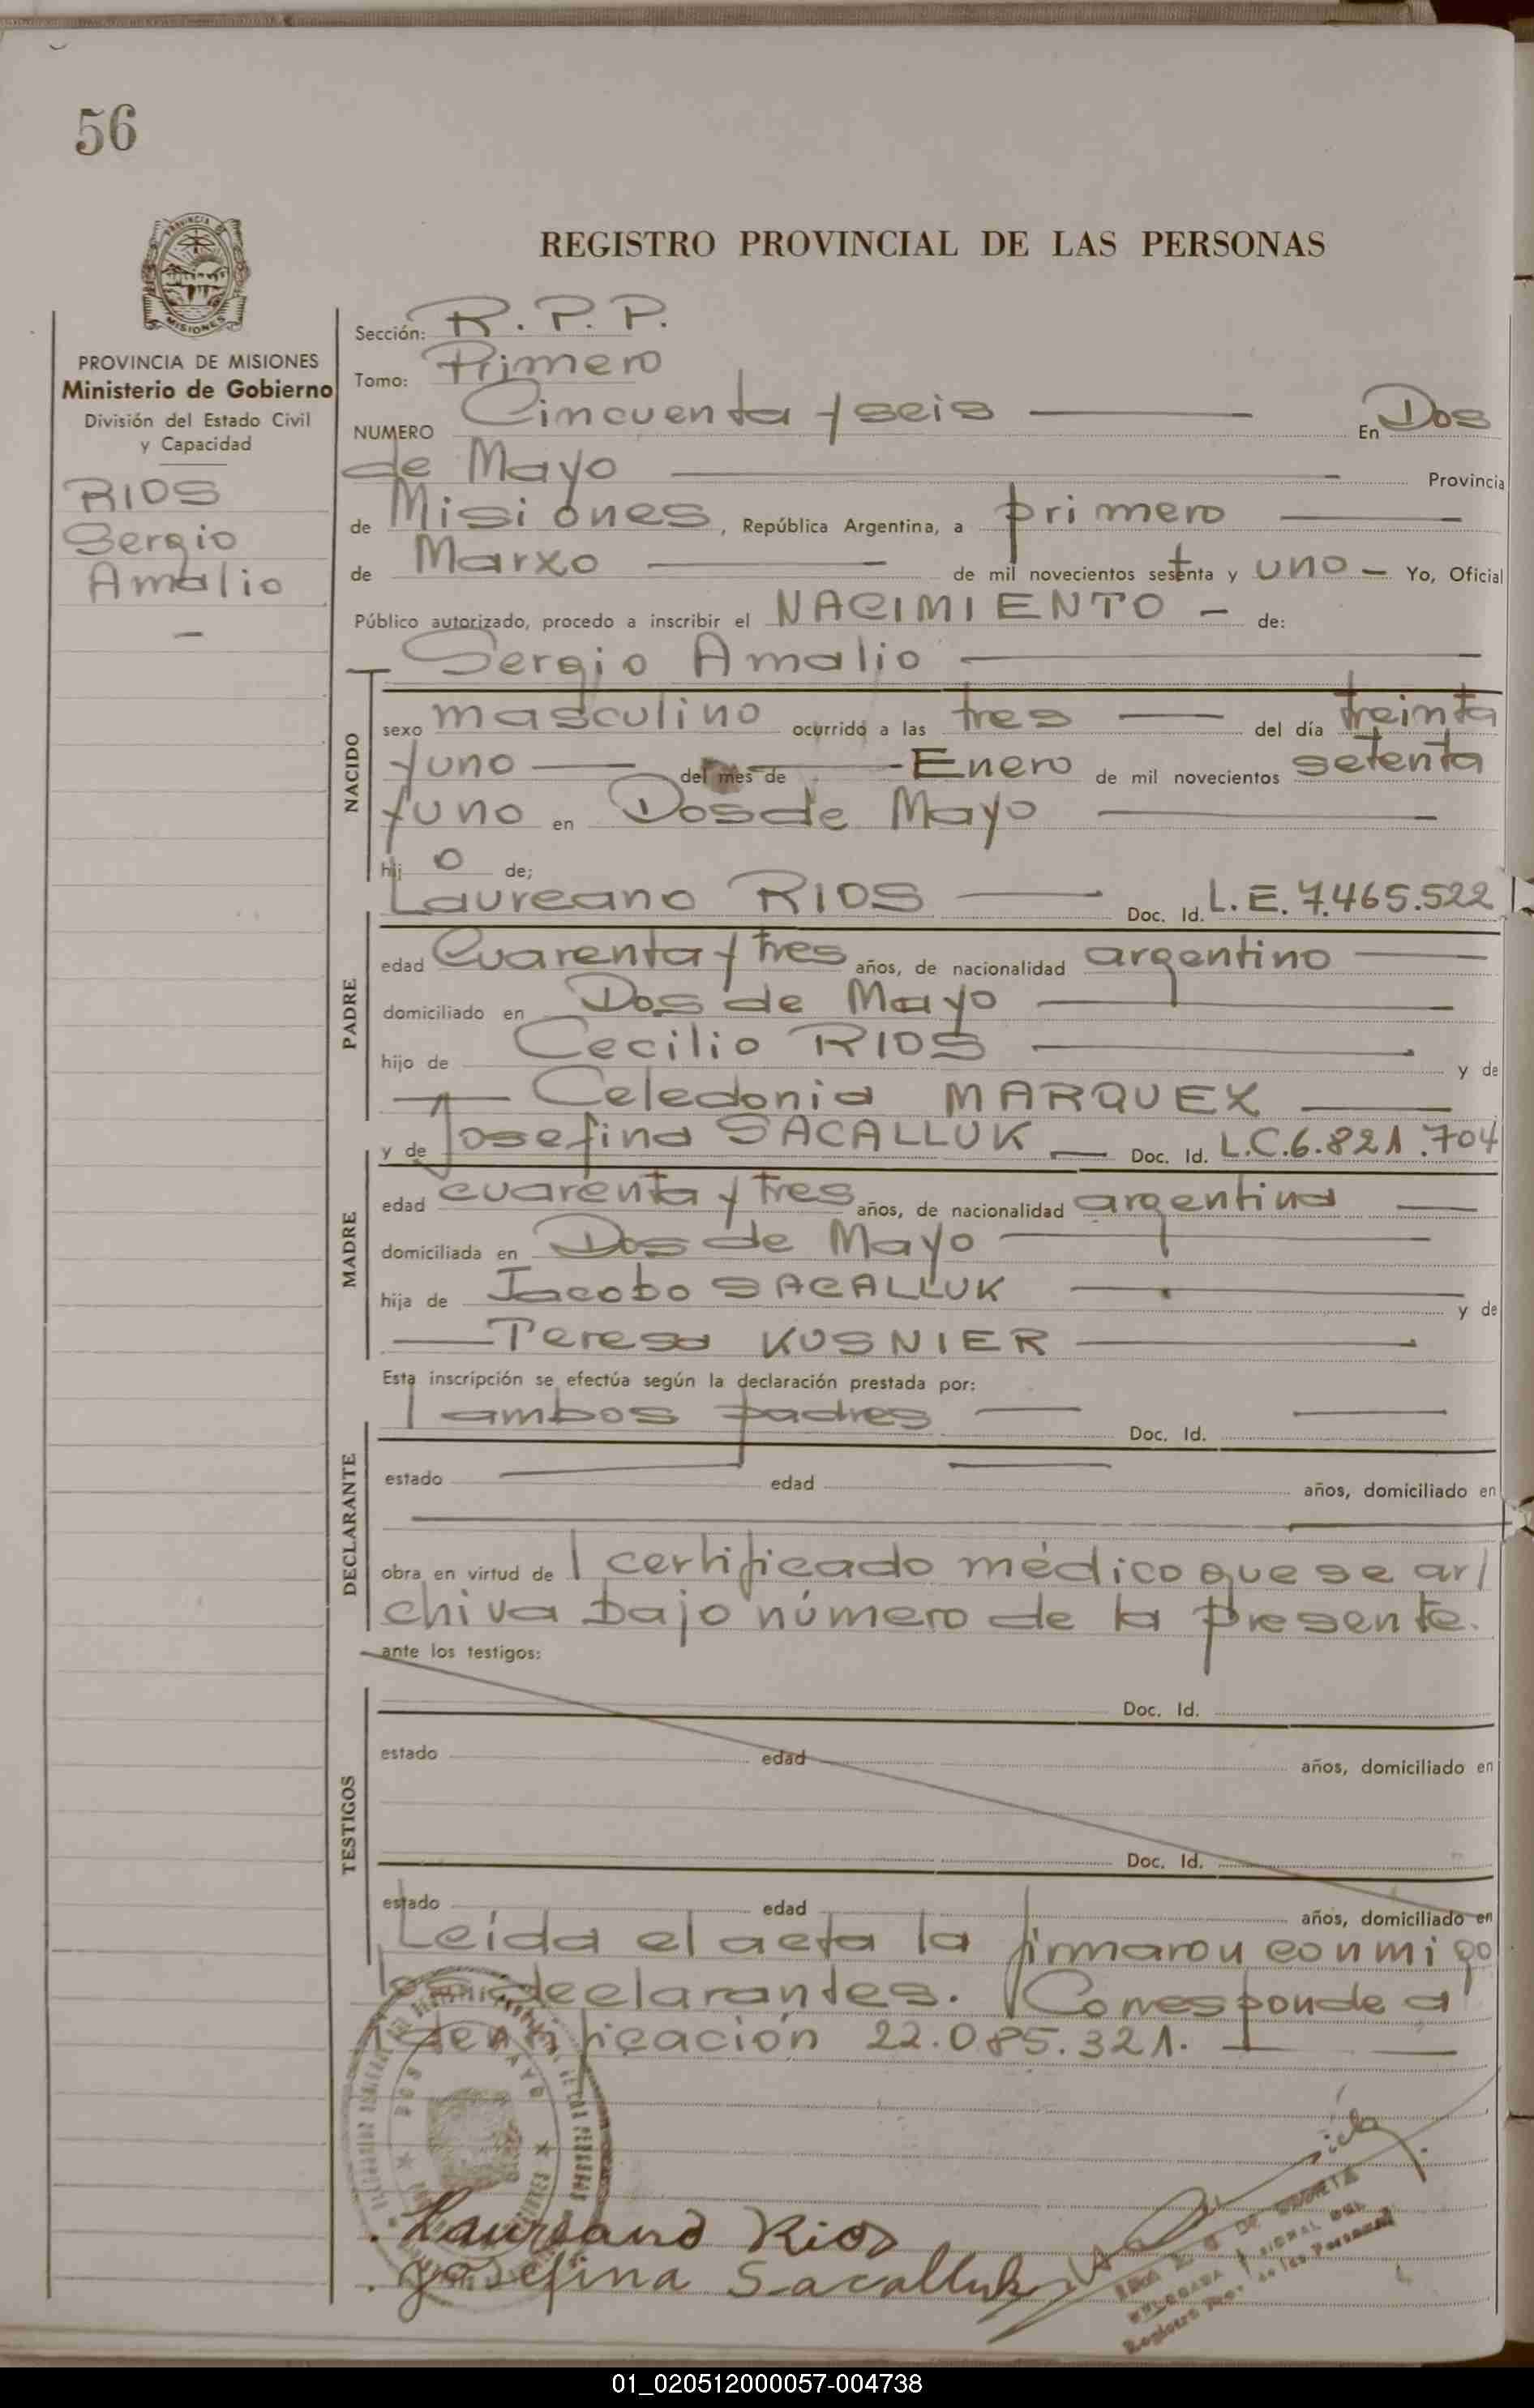 56
PROVINCIA
MISIONES
PROVINCIA DE MISIONES
Ministerio de Gobierno
División del Estado Civil
y Capacidad
RIOS
Sergio
Amalio
REGISTRO PROVINCIAL DE LAS PERSONAS
Sección: R. P. P.
Tomo: Primero
NUMERO Cincuenta y seis En Dos
de Mayo Provincia
de Misiones, República Argentina, a primero
de Marxo de mil novecientos setenta y uno Yo, Oficial
Público autorizado, procedo a inscribir el NACIMIENTO de:
Sergio Amalio
NACIDO
sexo masculino ocurrido a las tres del día treinta
y uno del mes de Enero de mil novecientos setenta
y uno en Dos de Mayo
hij o de;
Laureano RIOS Doc. Id. L.E. 7.465.522
PADRE
edad Cuarenta y tres años, de nacionalidad argentino
domiciliado en Dos de Mayo
hijo de Cecilio RIOS y de
Celedonia MARQUEX
y de Josefina SACALLUK Doc. Id. L.C. 6.821.704
MADRE
edad cuarenta y tres años, de nacionalidad argentina
domiciliada en Dos de Mayo
hija de Jacobo SACALLUK y de
Teresa KUSNIER
Esta inscripción se efectúa según la declaración prestada por:
ambos padres Doc. Id.
DECLARANTE
estado edad años, domiciliado en
obra en virtud de certificado médico que se ar/
chiva bajo número de la presente.
ante los testigos:
Doc. Id.
TESTIGOS
estado edad años, domiciliado en
Doc. Id.
estado edad años, domiciliado en
Leída el acta la firmaron conmigo
los declarantes. Corresponde a
identificación 22.085.321.
Laureano Rios
Josefina Sacalluk
01_020512000057-004738